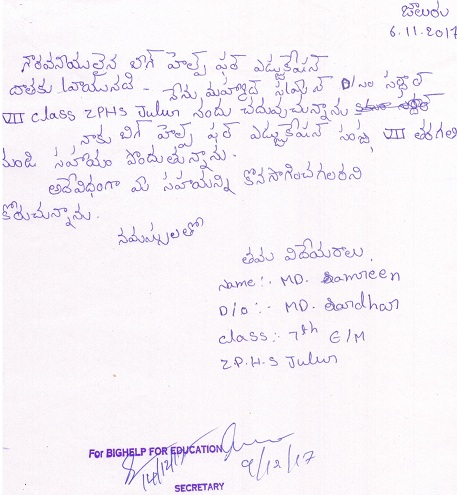 జులురు
6.11.2017
గౌరవనీయులైన బిగ్ హెల్ప్ ఫర్ ఎడ్యుకేషన్
దాతకు వ్రాయునది - నేను మహ్మద్ D/o సర్దార్
VII class ZPHS Julur నందు చదువుచున్నాను
నాకు బిగ్ హెల్ప్ ఫర్ ఎడ్యుకేషన్ సంస్థ VII తరగతి
నుండి సహాయం పొందుతున్నాను.
అదేవిధంగా మీ సహాయాన్ని కొనసాగించగలరని
కోరుచున్నాను.
నమస్కులతో
తమ విదేయరాలు
Name:- MD. Samreen
D/o:- MD. Sardhar
class:- 7th E/M
Z.P.H.S Julur
For BIGHELP FOR EDUCATION
14/12/17 9/12/17
SECRETARY